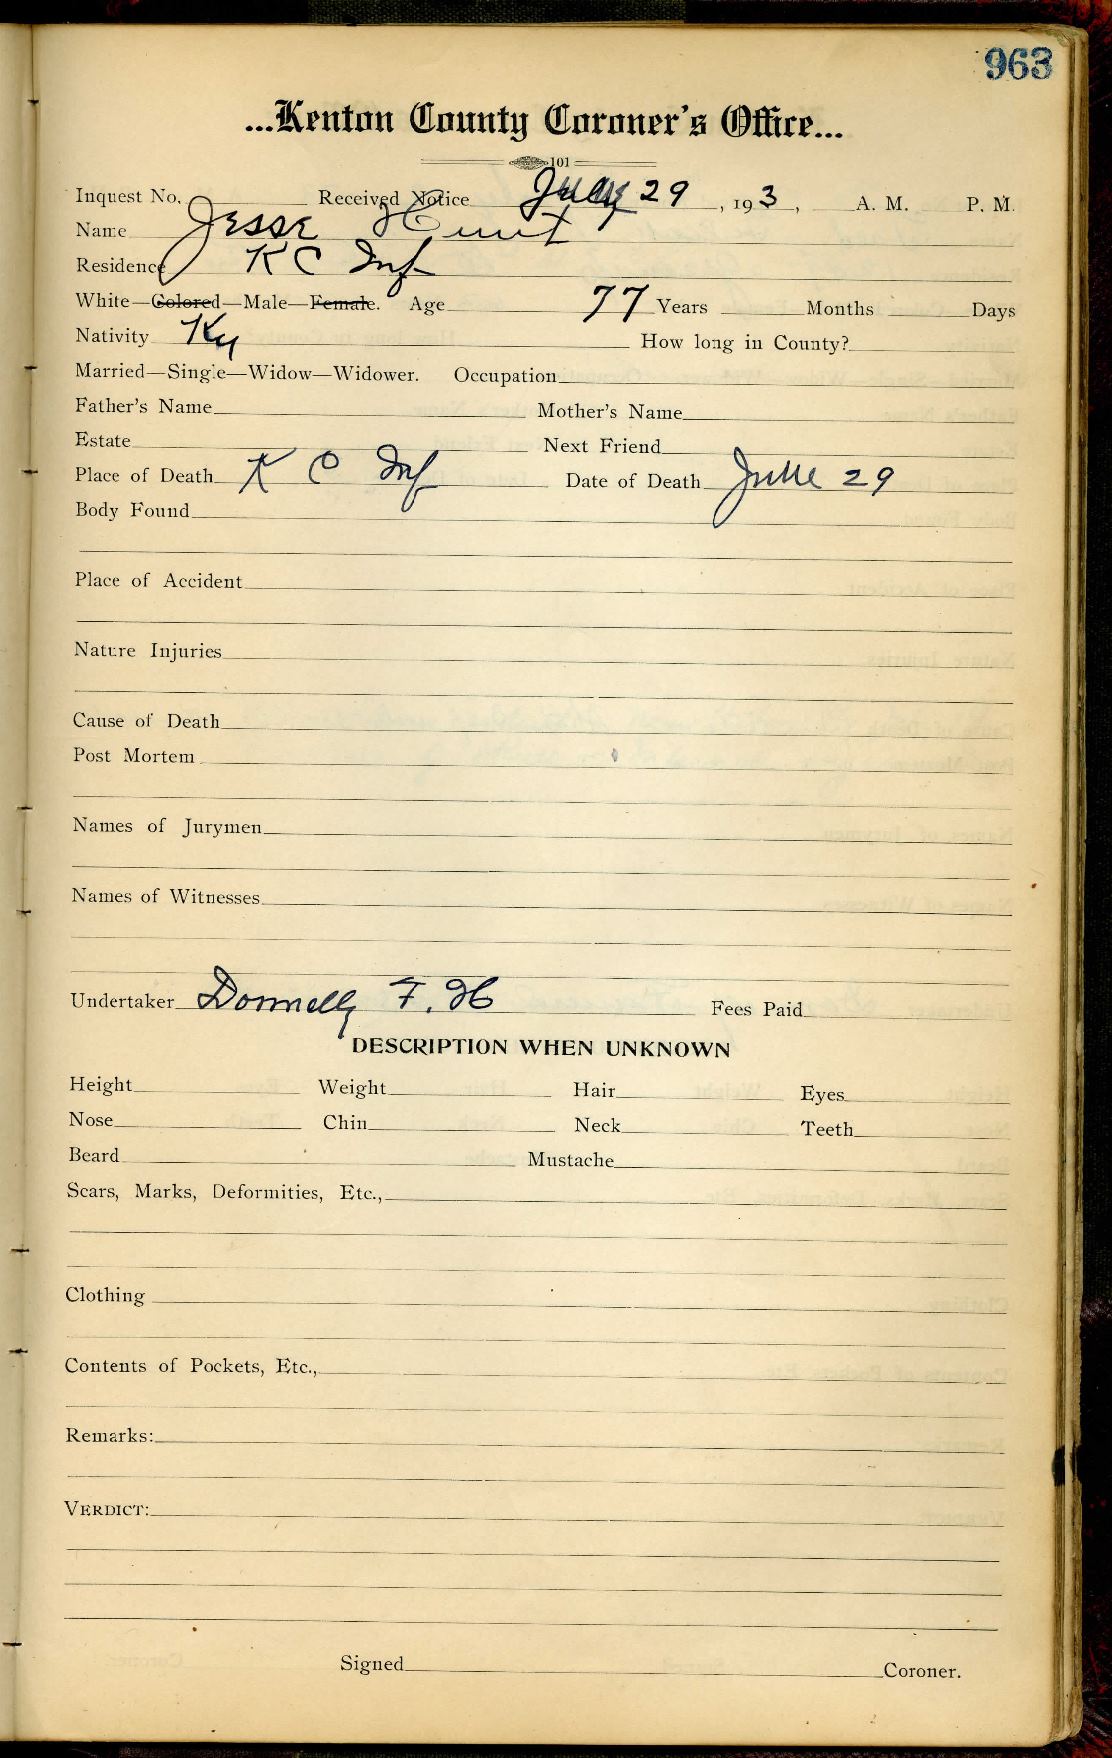 963
...Kenton County Coroner's Office...
101
Inquest No. Received Notice 29, 193, A. M. P. M.
Name Jesse Hunt
Residence K C Inf
White—Colored—Male—Female. Age 77 Years Months Days
Nativity Ky How long in County?
Married—Single—Widow—Widower. Occupation
Father's Name Mother's Name
Estate Next Friend
Place of Death K C Inf Date of Death June 29
Body Found
Place of Accident
Nature Injuries
Cause of Death
Post Mortem
Names of Jurymen
Names of Witnesses
Undertaker Donnelly F. H Fees Paid
DESCRIPTION WHEN UNKNOWN
Height Weight Hair Eyes
Nose Chin Neck Teeth
Beard Mustache
Scars, Marks, Deformities, Etc.,
Clothing
Contents of Pockets, Etc.,
Remarks:
VERDICT:
Signed Coroner.